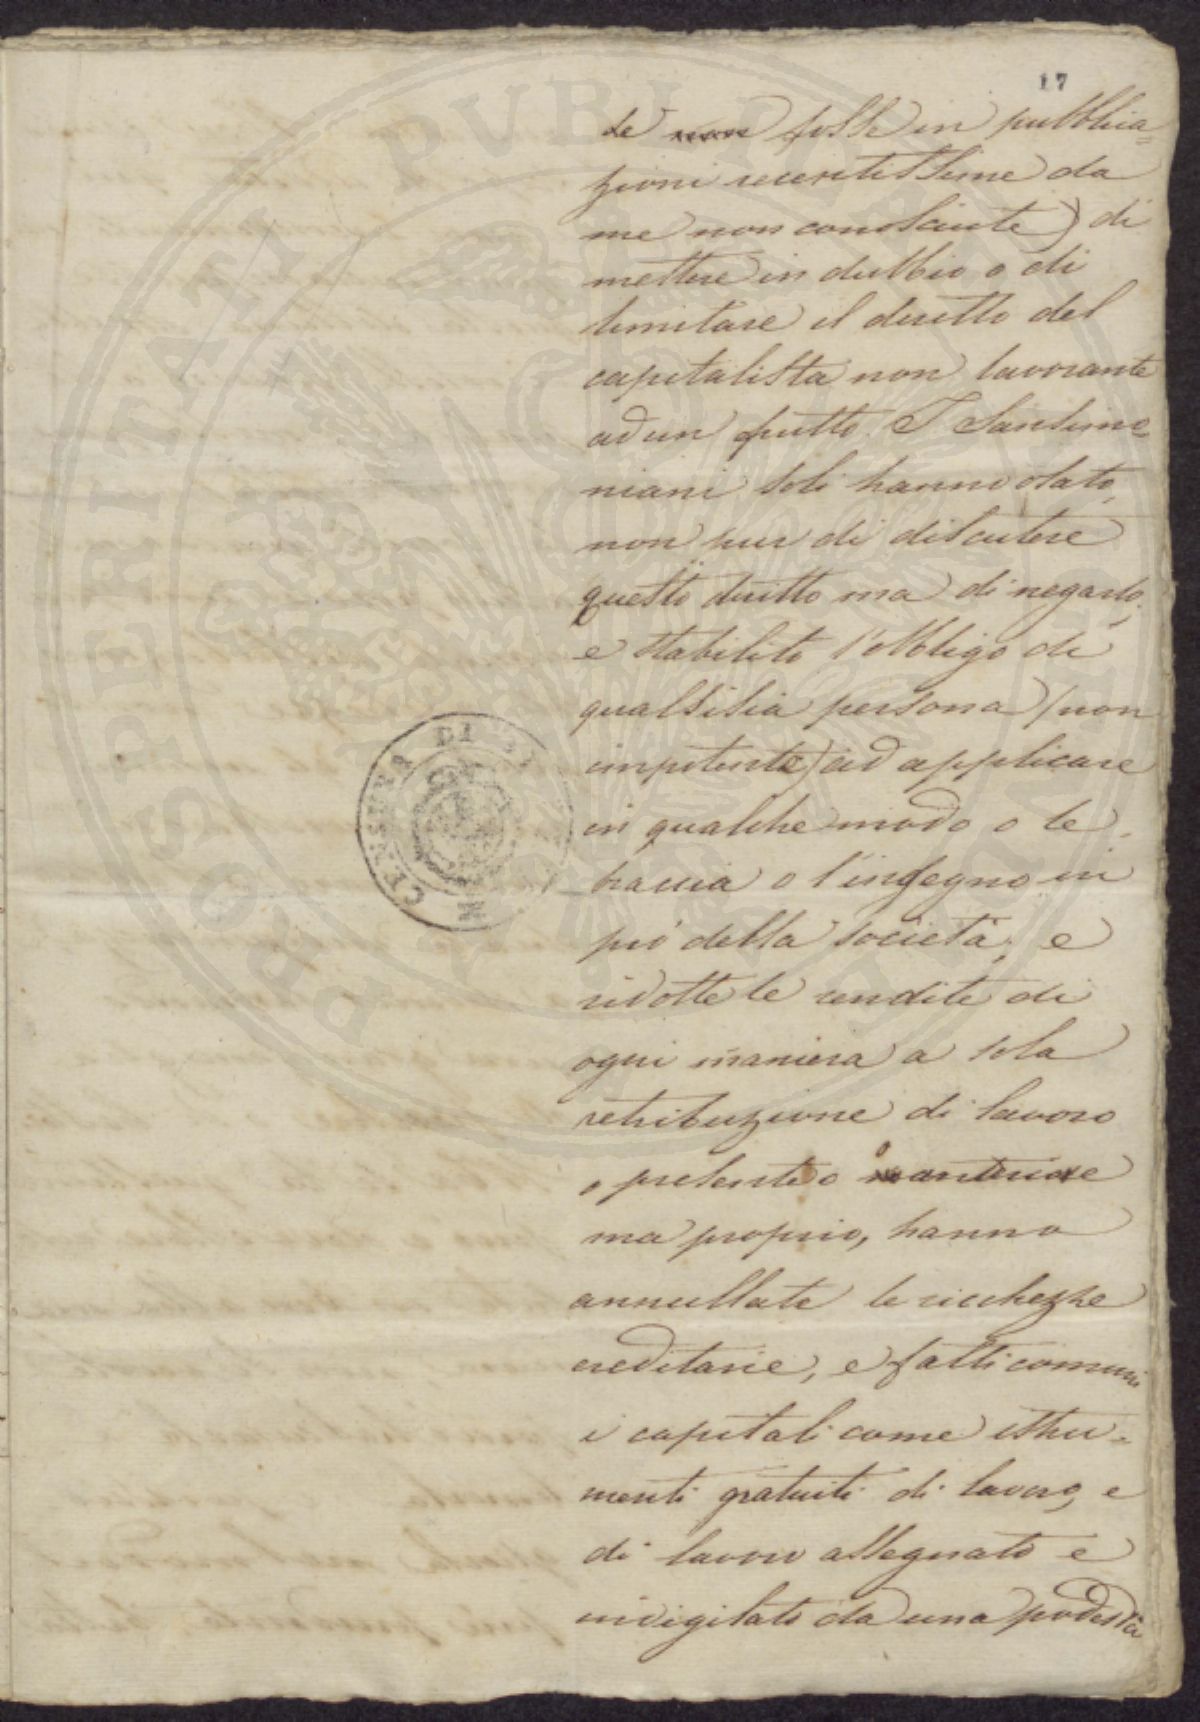 17
se non fosse in pubblica=
zioni recentissime da
me non conosciute) di
mettere in dubbio o di
limitare il diritto del
capitalista non lavorante
ad un frutto. I Sansimo=
niani soli hanno osato,
non pur di discutere
questo diritto ma di negarlo,
e stabilito l'obbligo di
qualsisia persona (non
impotente) ad applicare
in qualche modo o le
braccia o l'ingegno in
prò della società, e
ridotte le rendite di
ogni maniera a sola
retribuzione di lavoro
o presente o anteriore
ma proprio, hanno
annullate le ricchezze
ereditarie, e fatti comuni
i capitali come istru=
menti gratuiti di lavoro, e
di lavoro assegnato e
invigilato da una podestà
CENSURA DI
PROSPERITATI PVBLICAE